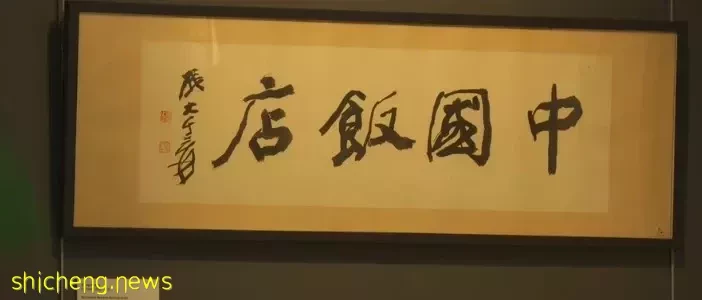 中國飯店
張大千爰
shicheng.news